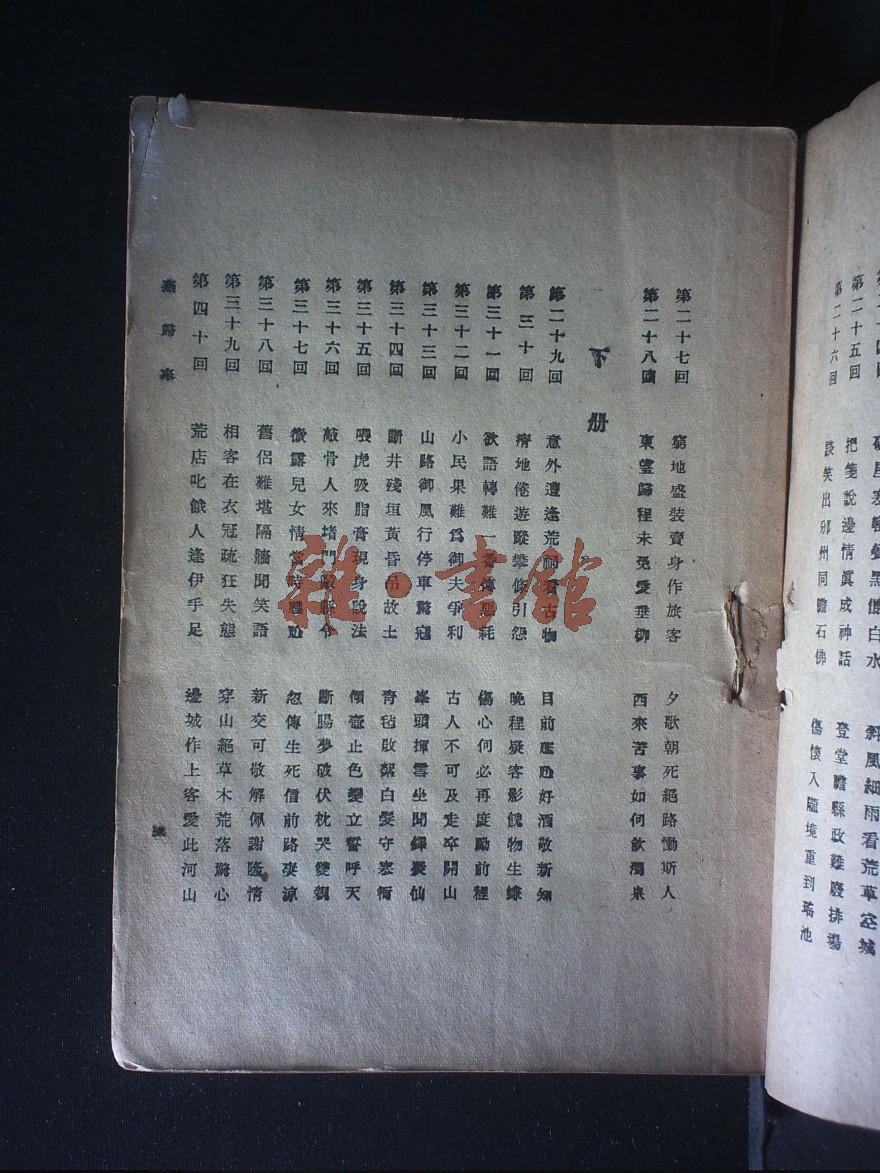 第二十五回 把箋說邊情眞成神話 登堂瞻縣政難廢排場
第二十六回 談笑出邠州同瞻石佛 傷懷入隴境重到瑤池
第二十七回 窮地盛裝賣身作旅客 夕歌朝死絕路慟斯人
第二十八回 東望歸程未免愛垂柳 西來苦事如何飲濁泉
下册
第二十九回 意外遭逢荒祠看古物 目前尷尬好酒敬新知
第三十回 瘠地倦遊蹤攀條引怨 晚程疑客影餽物生嫌
第三十一回 欲語轉難一番傳噩耗 傷心何必再度勵前程
第三十二回 小民果難爲御夫爭利 古人不可及走卒開山
第三十三回 山路御風行停車驚寇 峯頭揮雲坐聞鐸疑仙
第三十四回 斷井殘垣黃昏吊故土 靑毡敗絮白髮守寒衙
第三十五回 喂虎吸脂膏現身說法 傾壺止色變立誓呼天
第三十六回 敲骨人來堵門 縣令 斷腸夢破伏枕哭雙親
第三十七回 微露兒女情 忽傳生死信前路凄涼
第三十八回 舊侶難堪隔牆聞笑語 新交可敬解佩謝隆情
第三十九回 相客在衣冠疏狂失態 穿山絕草木荒落驚心
第四十回 荒店叱餓人逢伊手足 邊城作上客愛此河山
燕歸來
雜·書館